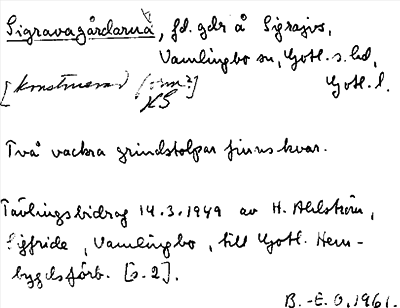 Sigravagårdarna, fd. gdr å Sigrajvs,
Vamlingbo sn, Gotl. s. hd,
[konstruerad form?] Gotl. l.
KS
Två vackra grindstolpar finns kvar.
Tävlingsbidrag 14.3.1949 av H. Ahlström,
Sigfride, Vamlingbo, till Gotl. Hem-
bygdsförb. [s. 2].
B.-E. O, 1961.